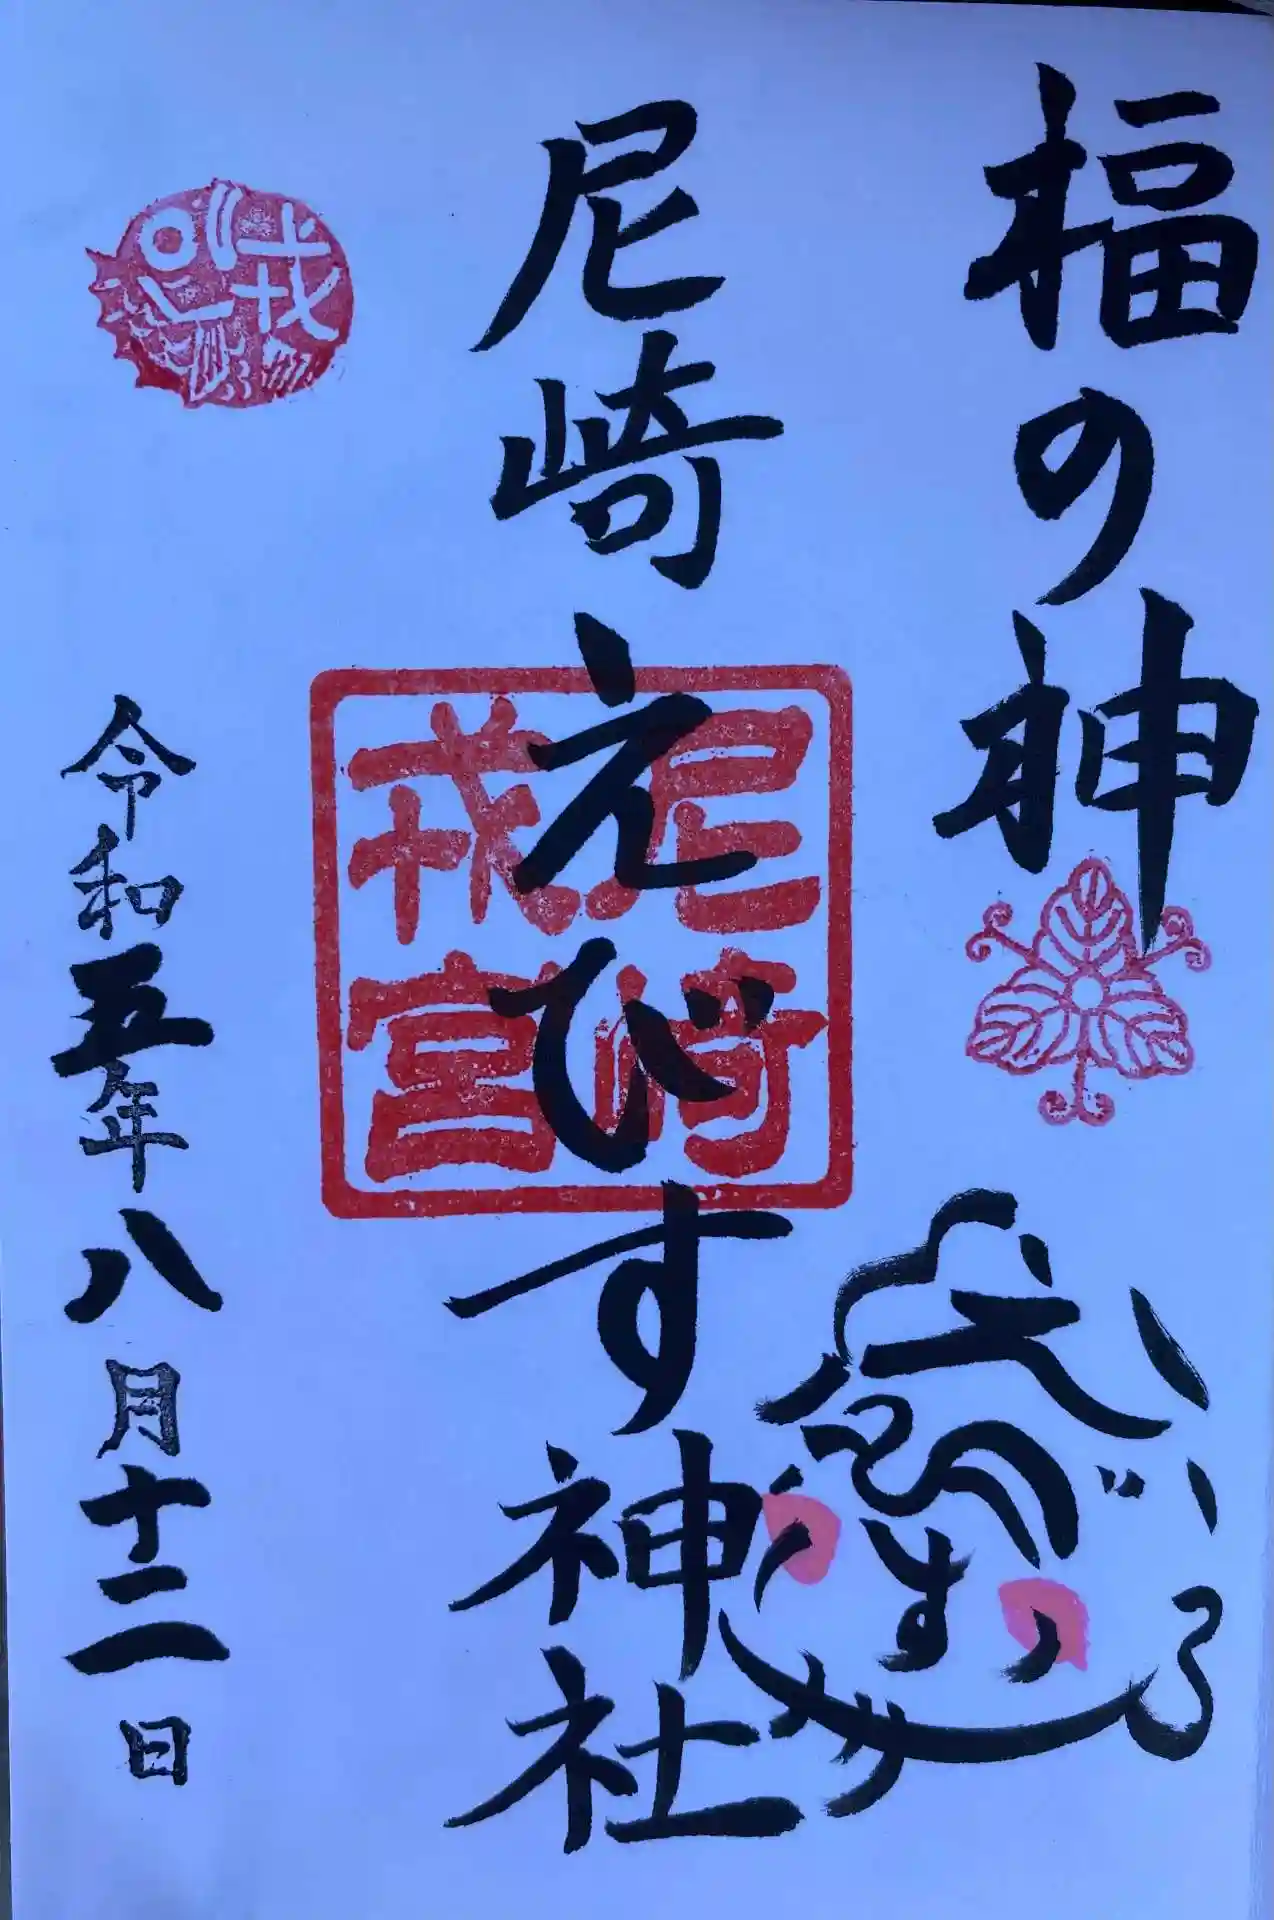 福の神
尼崎えびす神社
尼崎
戎宮
戎
令和五年八月十二日